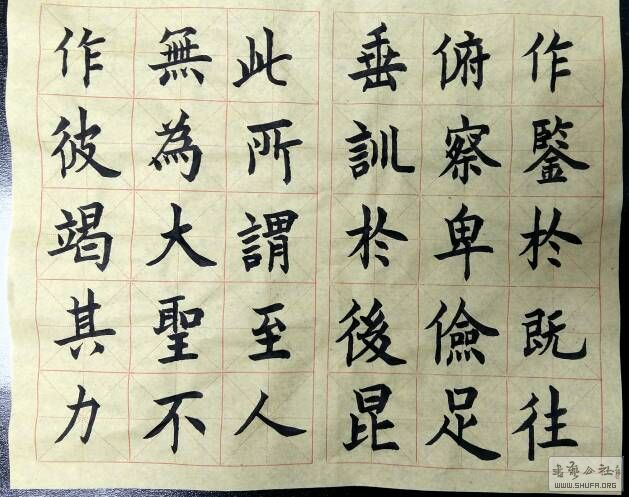 作鑒於既往
俯察卑儉足
垂訓於後昆
此所謂至人
無為大聖不
作彼竭其力
WWW.SHUFA.ORG